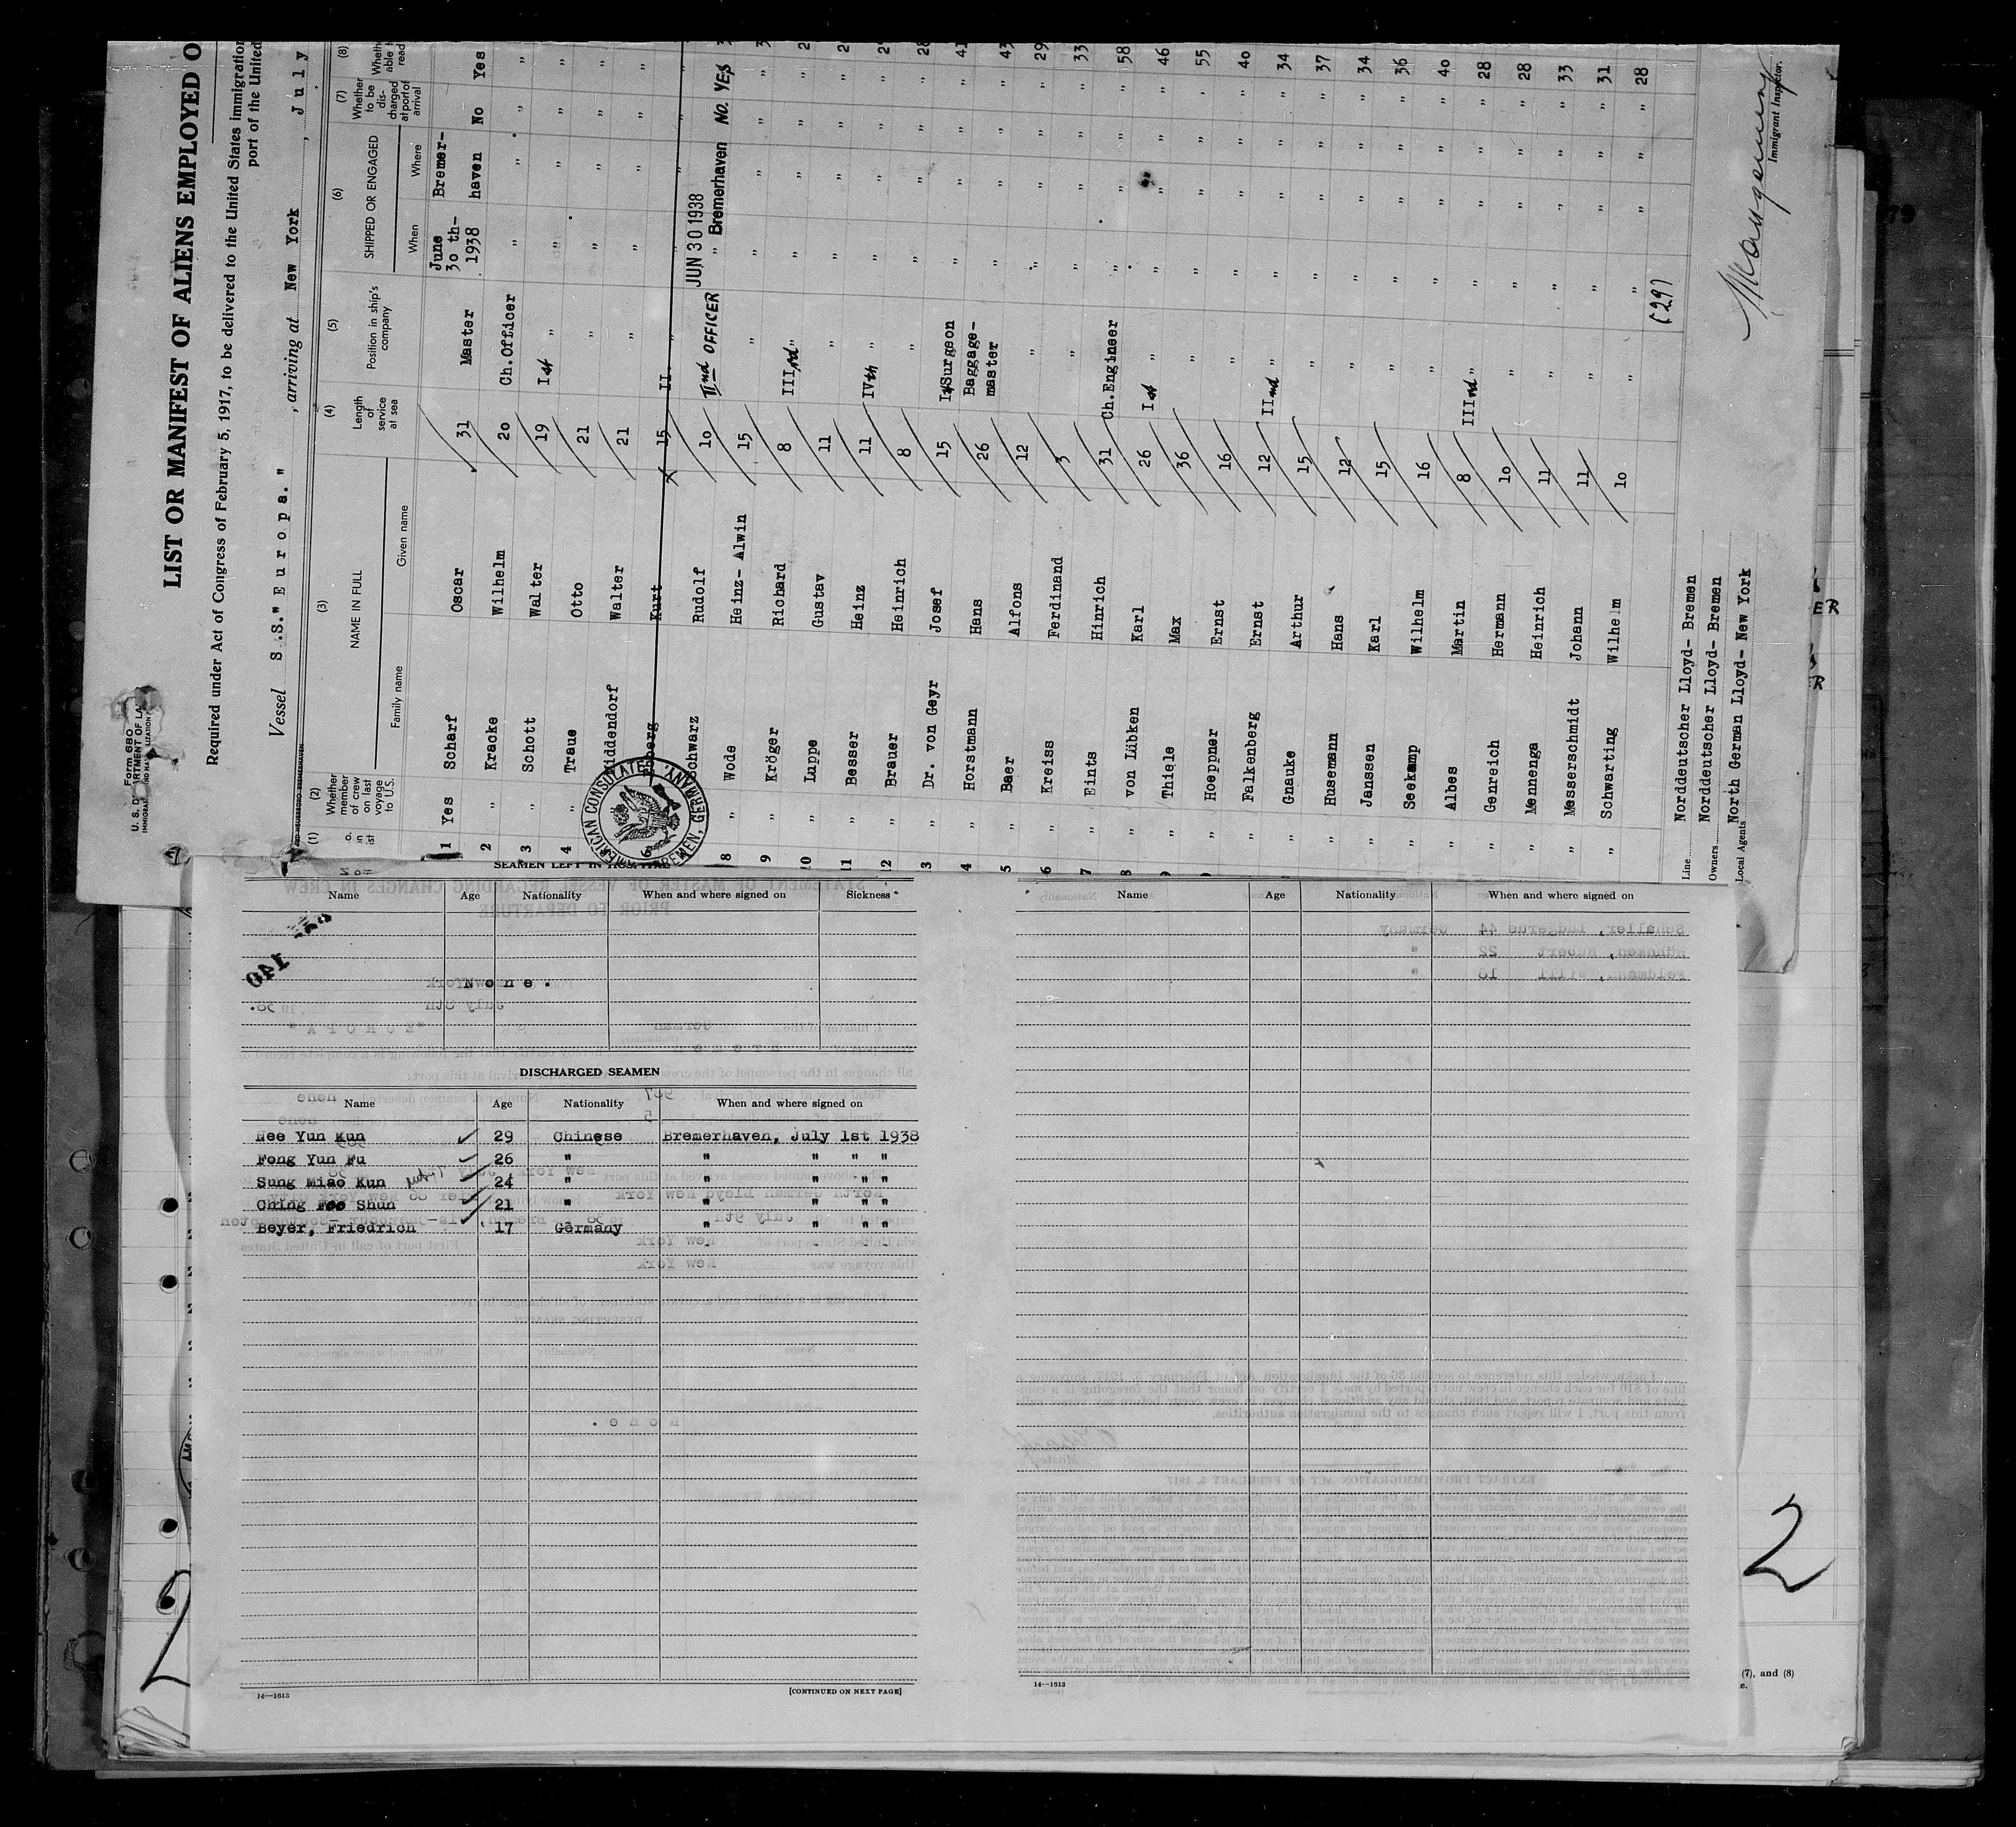 Form 680
IMMIGRA
LIST OR MANIFEST OF ALIENS EMPLOYED O
Required under Act of Congress of February 5, 1917, to be delivered to the United States immigration
port of the United
Vessel S.S. " E u r o p a . " , arriving at New York , July
(1) (2) (3) (4) (5) (6) (7) (8)
Whether member of crew on last voyage to U.S.
NAME IN FULL
Family name Given name
Length of service at sea
Position in ship's company
SHIPPED OR ENGAGED
When Where
Whether to be discharged at port of arrival
Wheth able t read
1 Yes Scharf Oscar 31 Master June 30 th- 1938 Bremer-haven No Yes
2 " Kracke Wilhelm 20 Ch.Officer " " "
3 " Schott Walter 19 Ist " " " " "
4 " Traue Otto 21 " " " " "
Middendorf Walter 21 " " " " "
6 berg Kurt 15 II. " " " " "
Schwarz Rudolf 10 IInd OFFICER JUN 30 1938 " Bremerhaven NO. YES
8 " Wode Heinz- Alwin 15 " " " " "
9 " Kröger Richard 8 IIIrd " " " " " 2
10 " Luppe Gustav 11 " " " " " 2
11 " Besser Heinz 11 IVth " " " " " 29
12 " Brauer Heinrich 8 " " " " 28
3 " Dr. von Geyr Josef 15 Ist Surgeon " " " " 41
4 " Horstmann Hans 26 Baggage-master " " " " 43
5 " Baer Alfons 12 " " " " " 29
6 " Kreiss Ferdinand 3 " " " " " 33
7 " Eints Hinrich 31 Ch.Engineer " " " " 58
8 " von Lübken Karl 26 Ist " " " " " 46
9 " Thiele Max 36 " " " " " 55
" Hoeppner Ernst 16 " " " " " 40
" Falkenberg Ernst 12 IInd " " " " " 34
" Gnauke Arthur 15 " " " " " 37
" Husemann Hans 12 " " " " " 34
" Janssen Karl 15 " " " " " 36
" Seekamp Wilhelm 16 " " " " " 40
" Albes Martin 8 IIIrd " " " " " 28
" Genreich Hermann 10 " " " " " 28
" Mennenga Heinrich 11 " " " " " 33
" Messerschmidt Johann 11 " " " " " 31
" Schwarting Wilhelm 10 " " " " " 28
(29)
Line Norddeutscher Lloyd- Bremen
Owners Norddeutscher Lloyd- Bremen
Local Agents North German Lloyd- New York
Immigrant Inspector.
AMERICAN CONSULATE, BREMEN, GERMANY.
SEAMEN LEFT IN HOSPITAL
Name Age Nationality When and where signed on Sickness
140
None.
DISCHARGED SEAMEN
Name Age Nationality When and where signed on
Nee Yun Kun 29 Chinese Bremerhaven, July 1st 1938
Fong Yun Fu 26 " " " " "
Sung Miao Kun 24 " " " " "
Ching Foo Shun 21 " " " " "
Beyer, Friedrich 17 Germany " " " "
14—1613
[CONTINUED ON NEXT PAGE]
Name Age Nationality When and where signed on
14—1613
2
(7), and (8)
79
ER